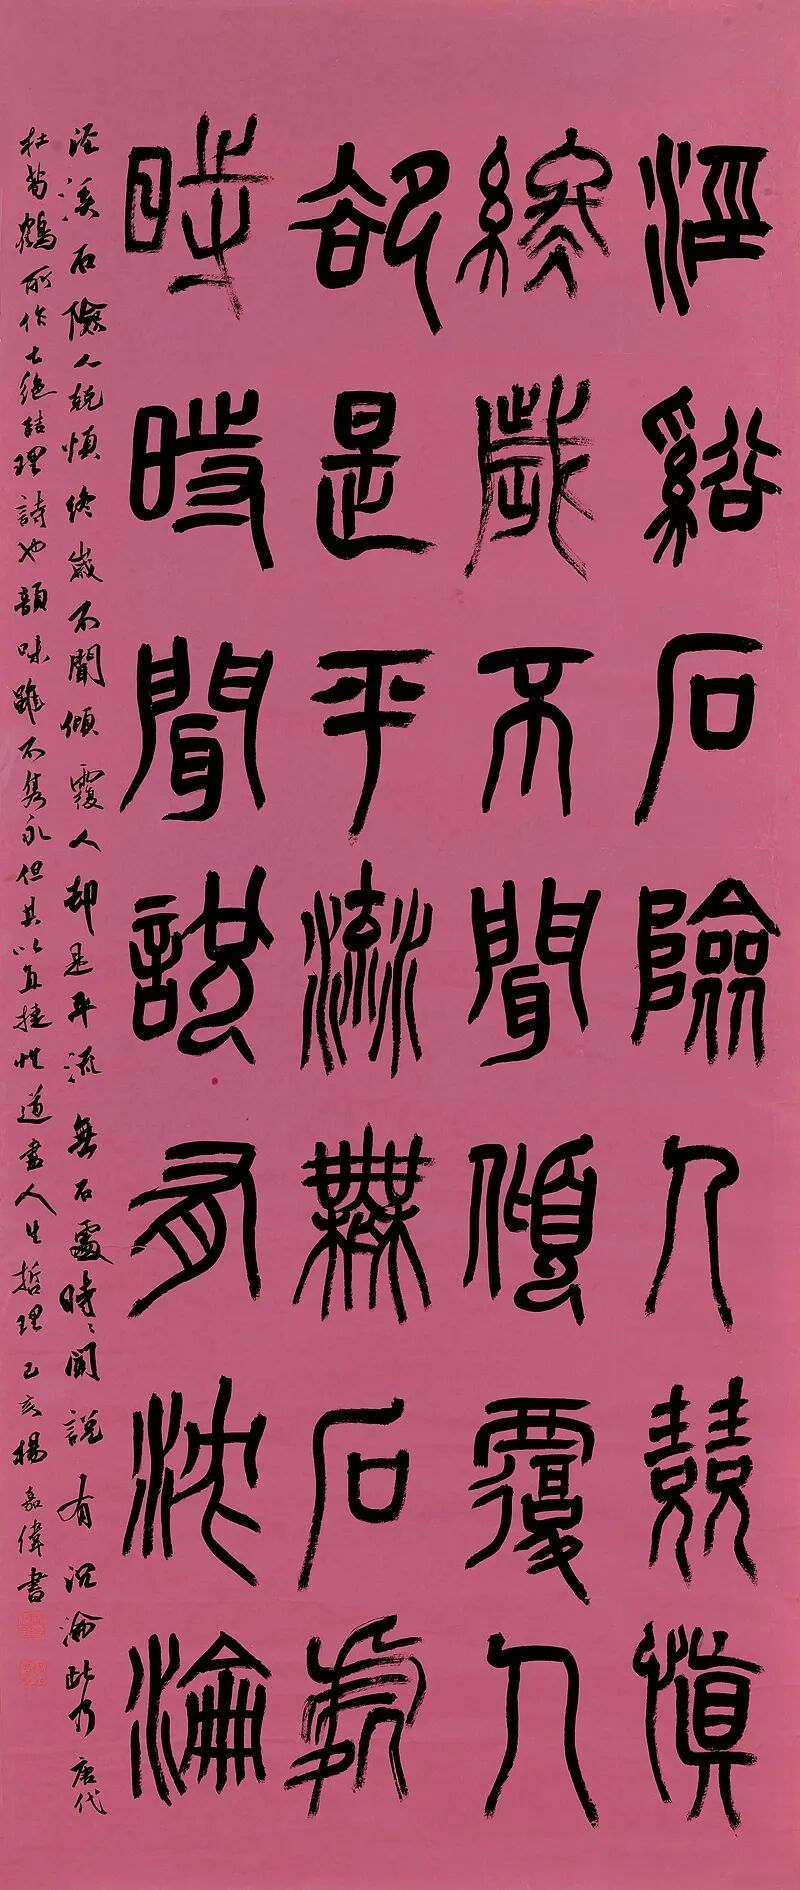 涇谿石險人競慎
終歲不聞傾覆人
卻是平流無石處
時時聞說有沈淪
涇溪石險人兢慎終歲不聞傾覆人却是平流無石處時時聞說有沉淪此乃唐代
杜荀鶴所作七絕哲理詩也韻味雖不雋永但其以直捷性道盡人生哲理己亥楊嘉偉書